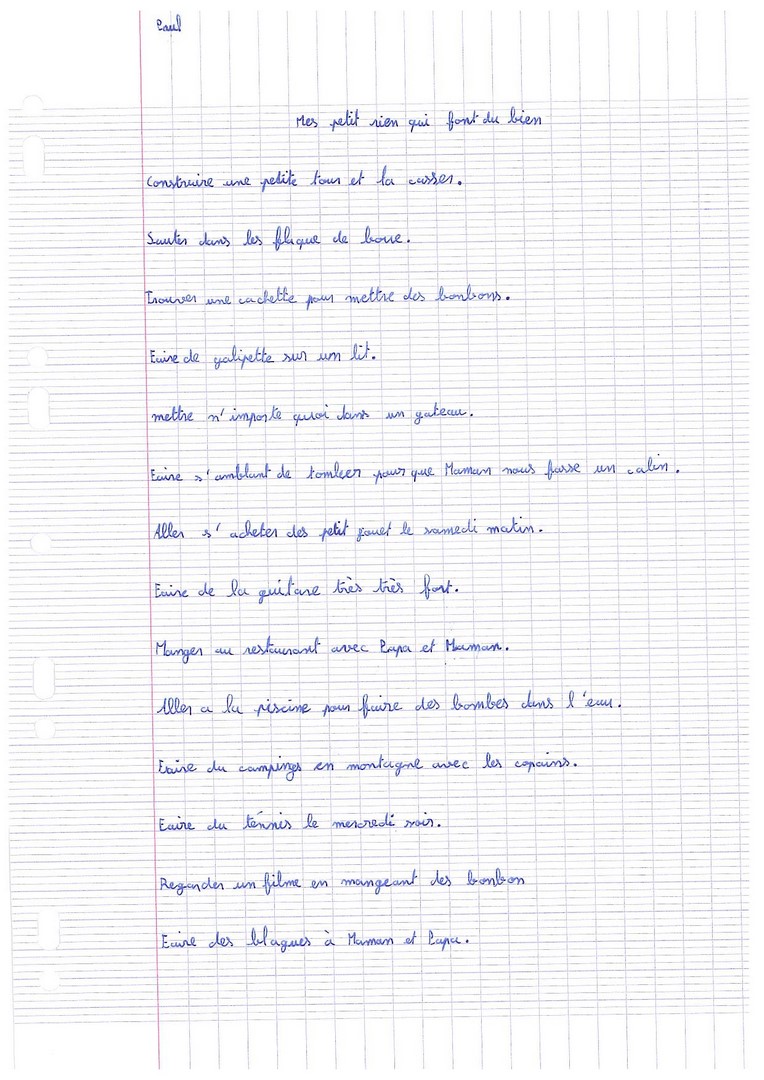 Paul
Mes petit rien qui font du bien
Construire une petite tour et la casser.
Sauter dans les flaque de boue.
Trouver une cachette pour mettre des bonbons.
Faire de galipette sur un lit.
mettre n'importe quoi dans un gateau.
Faire s'amblant de tomber pour que Maman nous fasse un calin.
Aller s'acheter des petit jouet le samedi matin.
Faire de la guitare très très fort.
Manger au restaurant avec Papa et Maman.
Aller a la piscine pour faire des bombes dans l'eau.
Faire du campings en montagne avec les copains.
Faire du tennis le mercredi soir.
Regarder un filme en mangeant des bonbon
Faire des blagues à Maman et Papa.